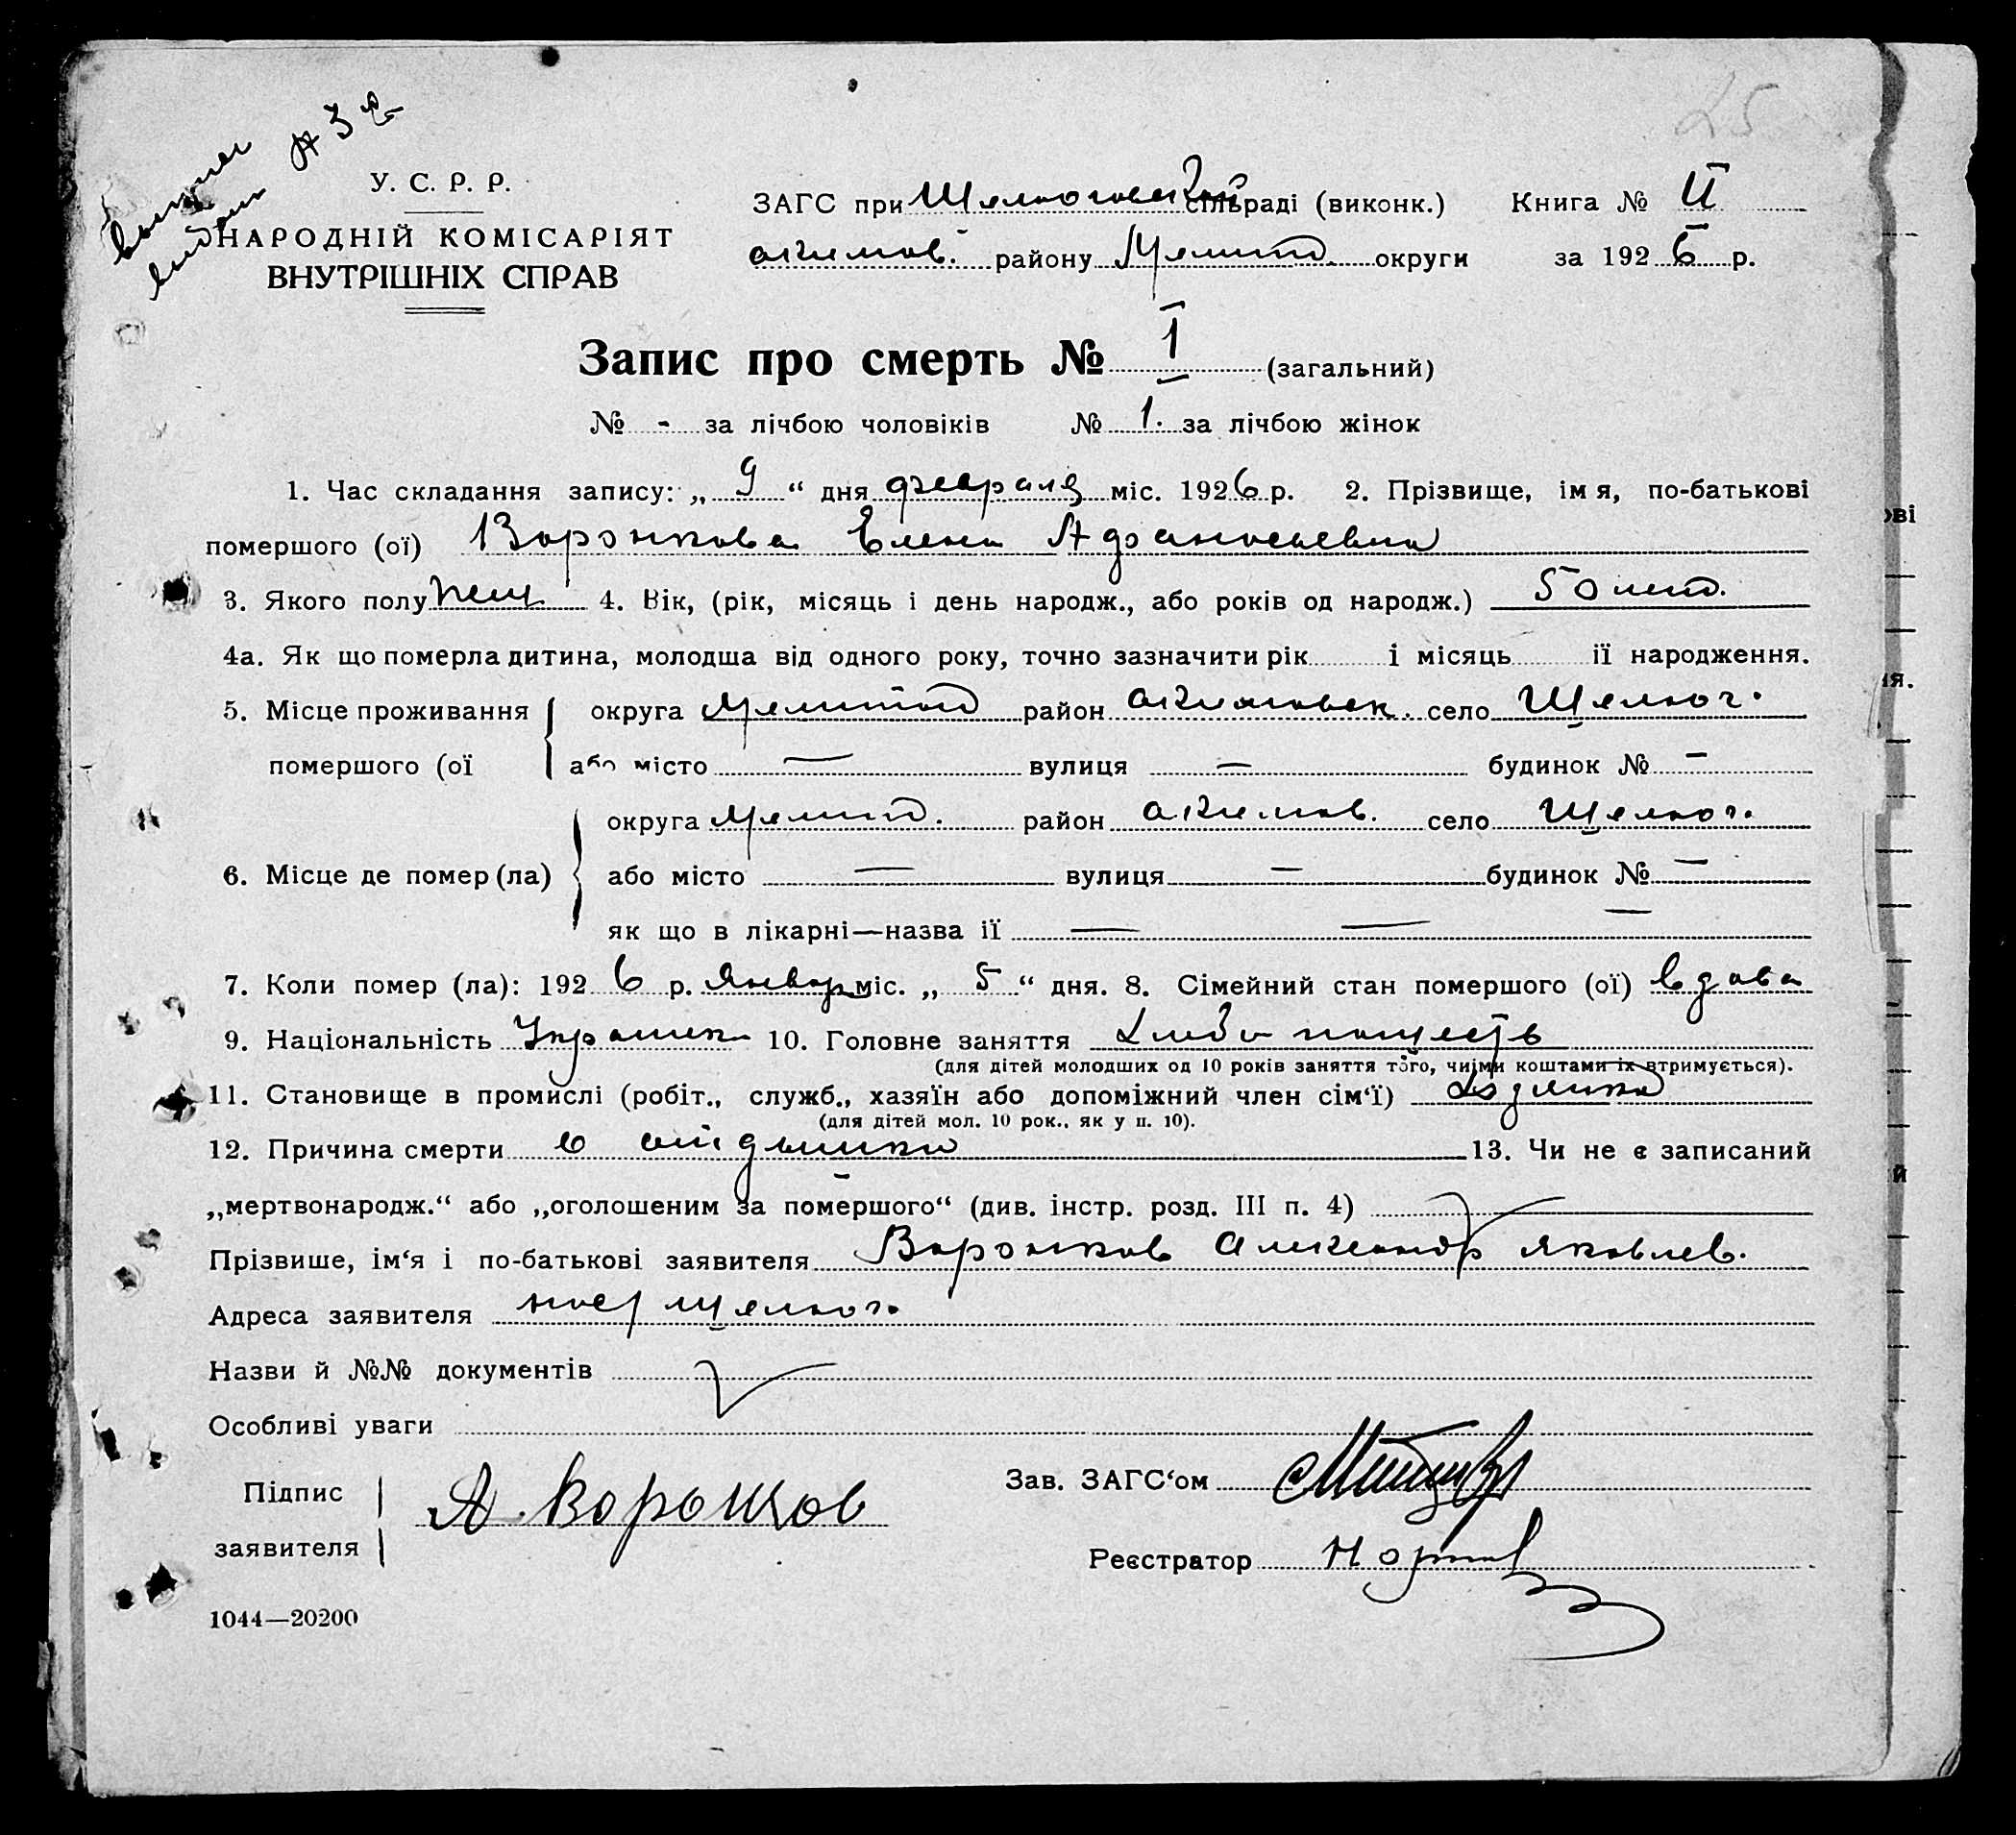 25
У. С. Р. Р.
НАРОДНІЙ КОМІСАРІЯТ
ВНУТРІШНІХ СПРАВ
ЗАГС при сільраді (виконк.) Книга № II
акимов. району Мелит. округи за 1926 р.
Запис про смерть № 1 (загальний)
№ - за лічбою чоловіків № 1. за лічбою жінок
1. Час складання запису: „ 9 “ дня февраля міс. 1926 р. 2. Прізвище, імя, по-батькові
помершого (ої) Воронкова Елена Афанасьевна
3. Якого полу жен 4. Вік, (рік, місяць і день народж., або років од народж.) 50 лет.
4а. Як що померла дитина, молодша від одного року, точно зазначити рік і місяць її народження.
5. Місце проживання округа Мелитоп район акимовск. село Щелюг.
помершого (ої або місто — вулиця — будинок № —
округа Мелит. район акимов. село Щелюг.
6. Місце де помер (ла) або місто — вулиця — будинок № —
як що в лікарні—назва її — — —
7. Коли помер (ла): 1926 р. Январ міс. „ 5 “ дня. 8. Сімейний стан помершого (ої) вдова
9. Національність 10. Головне заняття
(для дітей молодших од 10 років заняття того, чиїми коштами їх втримується).
11. Становище в промислі (робіт., служб., хазяїн або допоміжний член сім‘ї)
(для дітей мол. 10 рок., як у п. 10).
12. Причина смерти 13. Чи не є записаний
„мертвонародж.“ або „оголошеним за помершого“ (див. інстр. розд. III п. 4)
Прізвише, ім‘я і по-батькові заявителя Воронков Александр Яковлев.
Адреса заявителя Щелюг.
Назви й №№ документів
Особливі уваги
Підпис Зав. ЗАГС‘ом
заявителя А. Воронков
Реєстратор
1044—20200